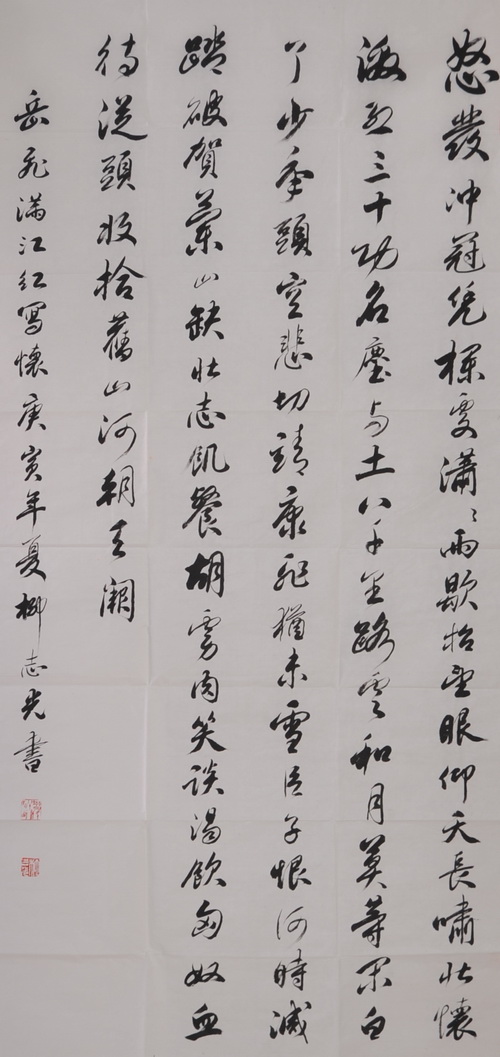 怒發冲冠凭欄處瀟〻雨歇抬望眼仰天長嘯壯懷
激烈三十功名塵与土八千里路雲和月莫等閑白
了少年頭空悲切靖康耻猶未雪臣子恨何時滅
踏破賀蘭山缺壯志飢餐胡虜肉笑談渴飲匈奴血
待從頭收拾舊山河朝天闕
岳飛滿江紅寫懷庚寅年夏柳志光書